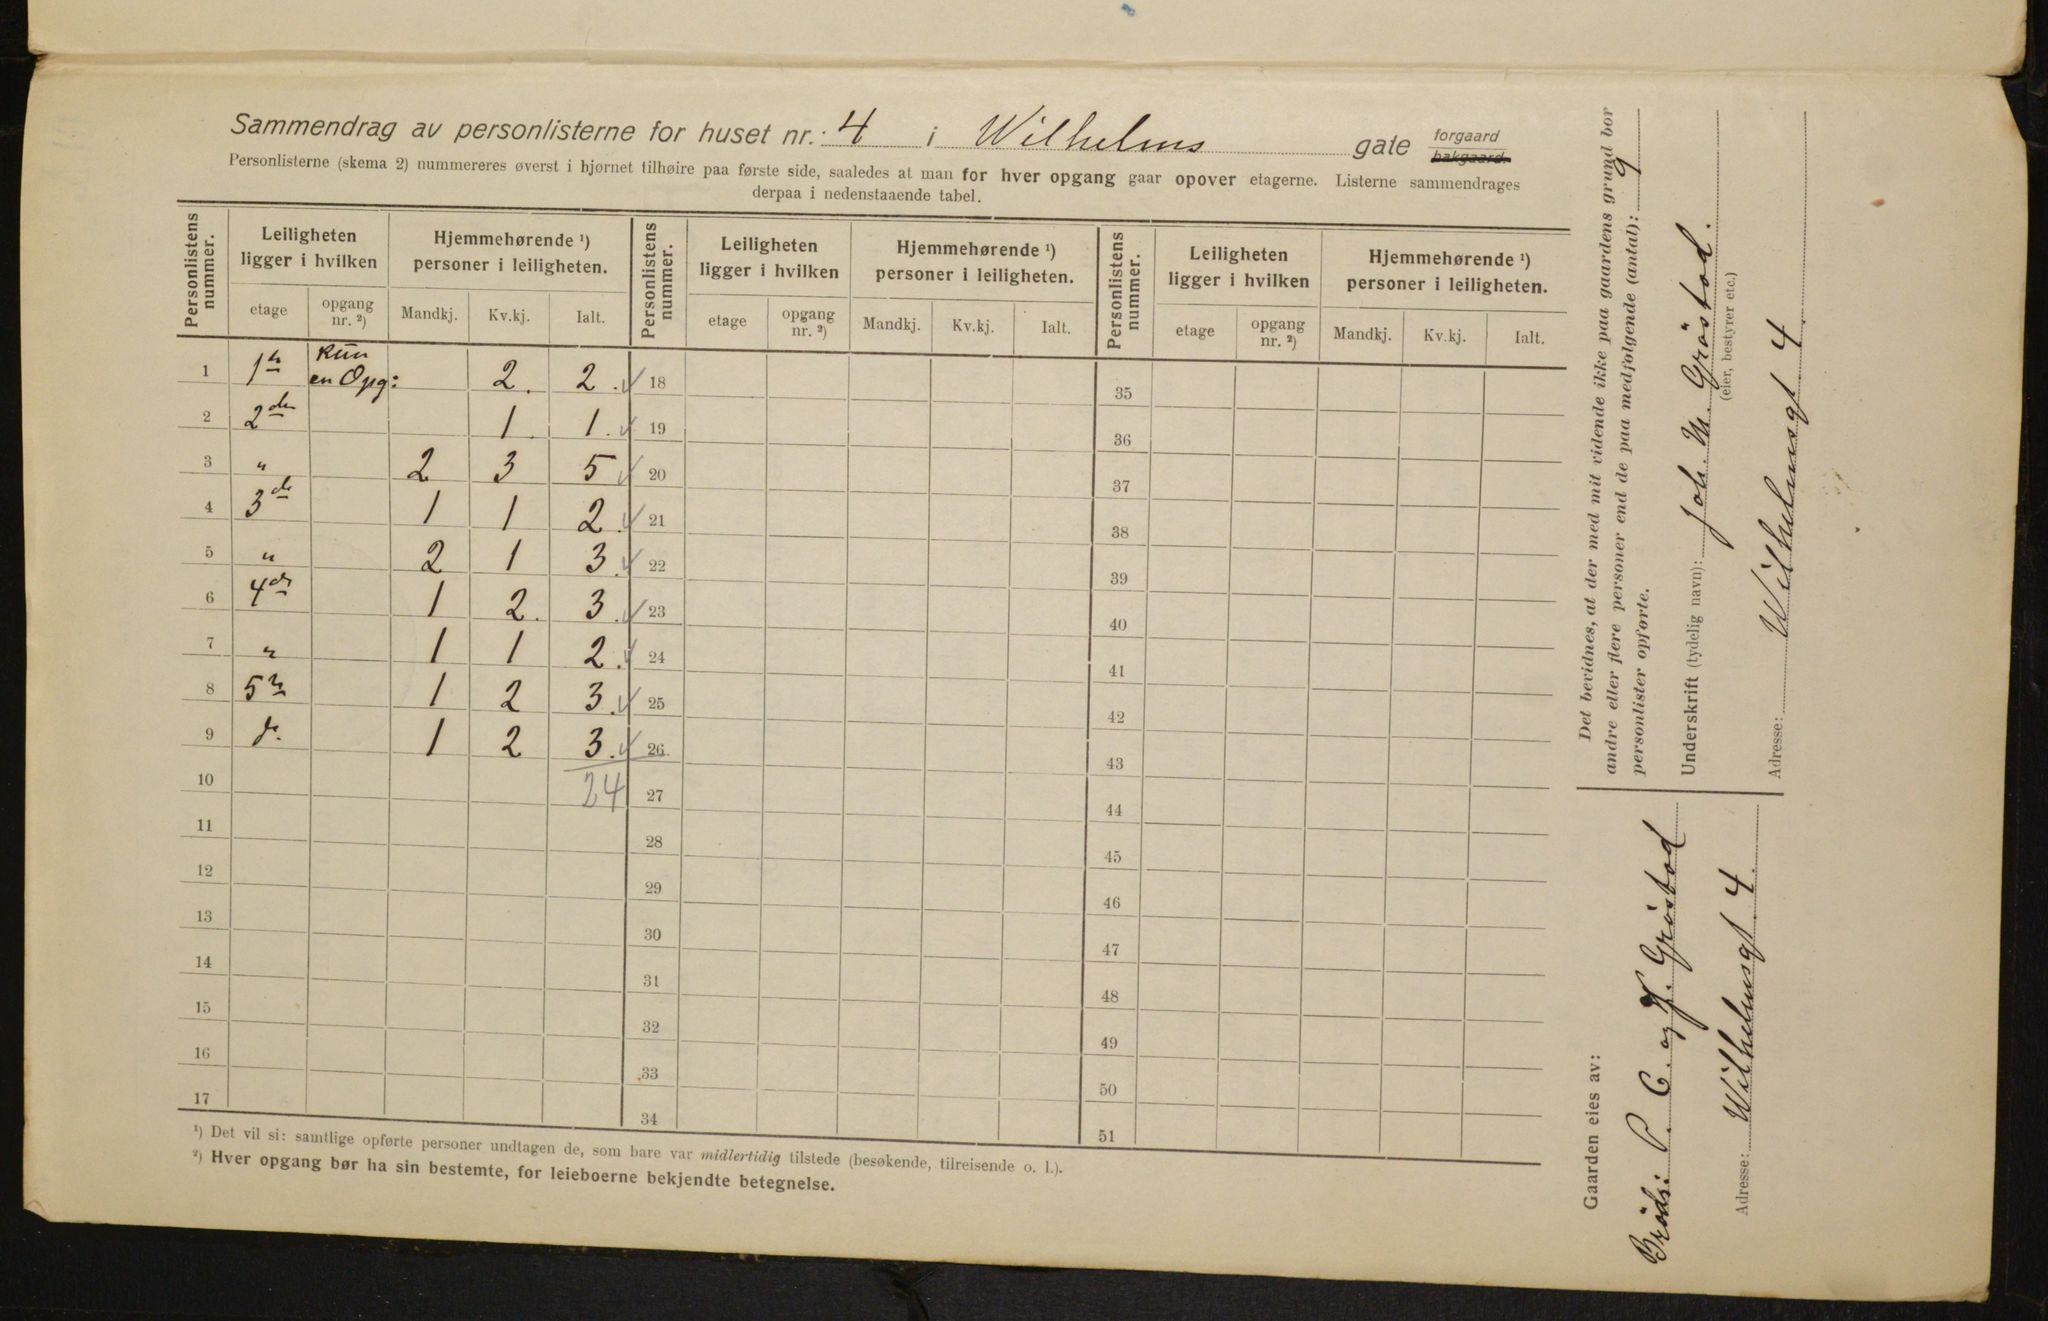 Sammendrag av personlisterne for huset nr. 4 i Wilhelms gate forgaard bakgaard.
Personlisterne (skema 2) nummereres øverst i hjørnet tilhøire paa første side, saaledes at man for hver opgang gaar opover etagerne. Listerne sammendrages
derpaa i nedenstaaende tabel.
Personlistens nummer. Leiligheten ligger i hvilken Hjemmehørende ¹) personer i leiligheten. Personlistens nummer. Leiligheten ligger i hvilken Hjemmehørende ¹) personer i leiligheten. Personlistens nummer. Leiligheten ligger i hvilken Hjemmehørende ¹) personer i leiligheten.
etage opgang nr. ²) Mandkj. Kv.kj. Ialt. etage opgang nr. ²) Mandkj. Kv.kj. Ialt. etage opgang nr. ²) Mandkj. Kv.kj. Ialt.
1 1ste kun en Opg: 2. 2. 18 35
2 2den 1. 1. 19 36
3 " 2 3 5 20 37
4 3de 1 1 2. 21 38
5 " 2 1 3. 22 39
6 4de 1 2. 3. 23 40
7 " 1 1 2. 24 41
8 5te 1 2 3. 25 42
9 do. 1 2 3. 26 43
10 24 27 44
11 28 45
12 29 46
13 30 47
14 31 48
15 32 49
16 33 50
17 34 51
¹) Det vil si: samtlige opførte personer undtagen de, som bare var midlertidig tilstede (besøkende, tilreisende o. l.).
²) Hver opgang bør ha sin bestemte, for leieboerne bekjendte betegnelse.
Det bevidnes, at der med mit vidende ikke paa gaardens grund bor
andre eller flere personer end de paa medfølgende (antal): 9
personlister opførte.
Underskrift (tydelig navn): Joh. M. Gröstad.
(eier, bestyrer etc.)
Adresse: Wilhelmsgt 4
Gaarden eies av:
Brödr: P. C. og J. Gröstad
Adresse: Wilhelmsgt 4